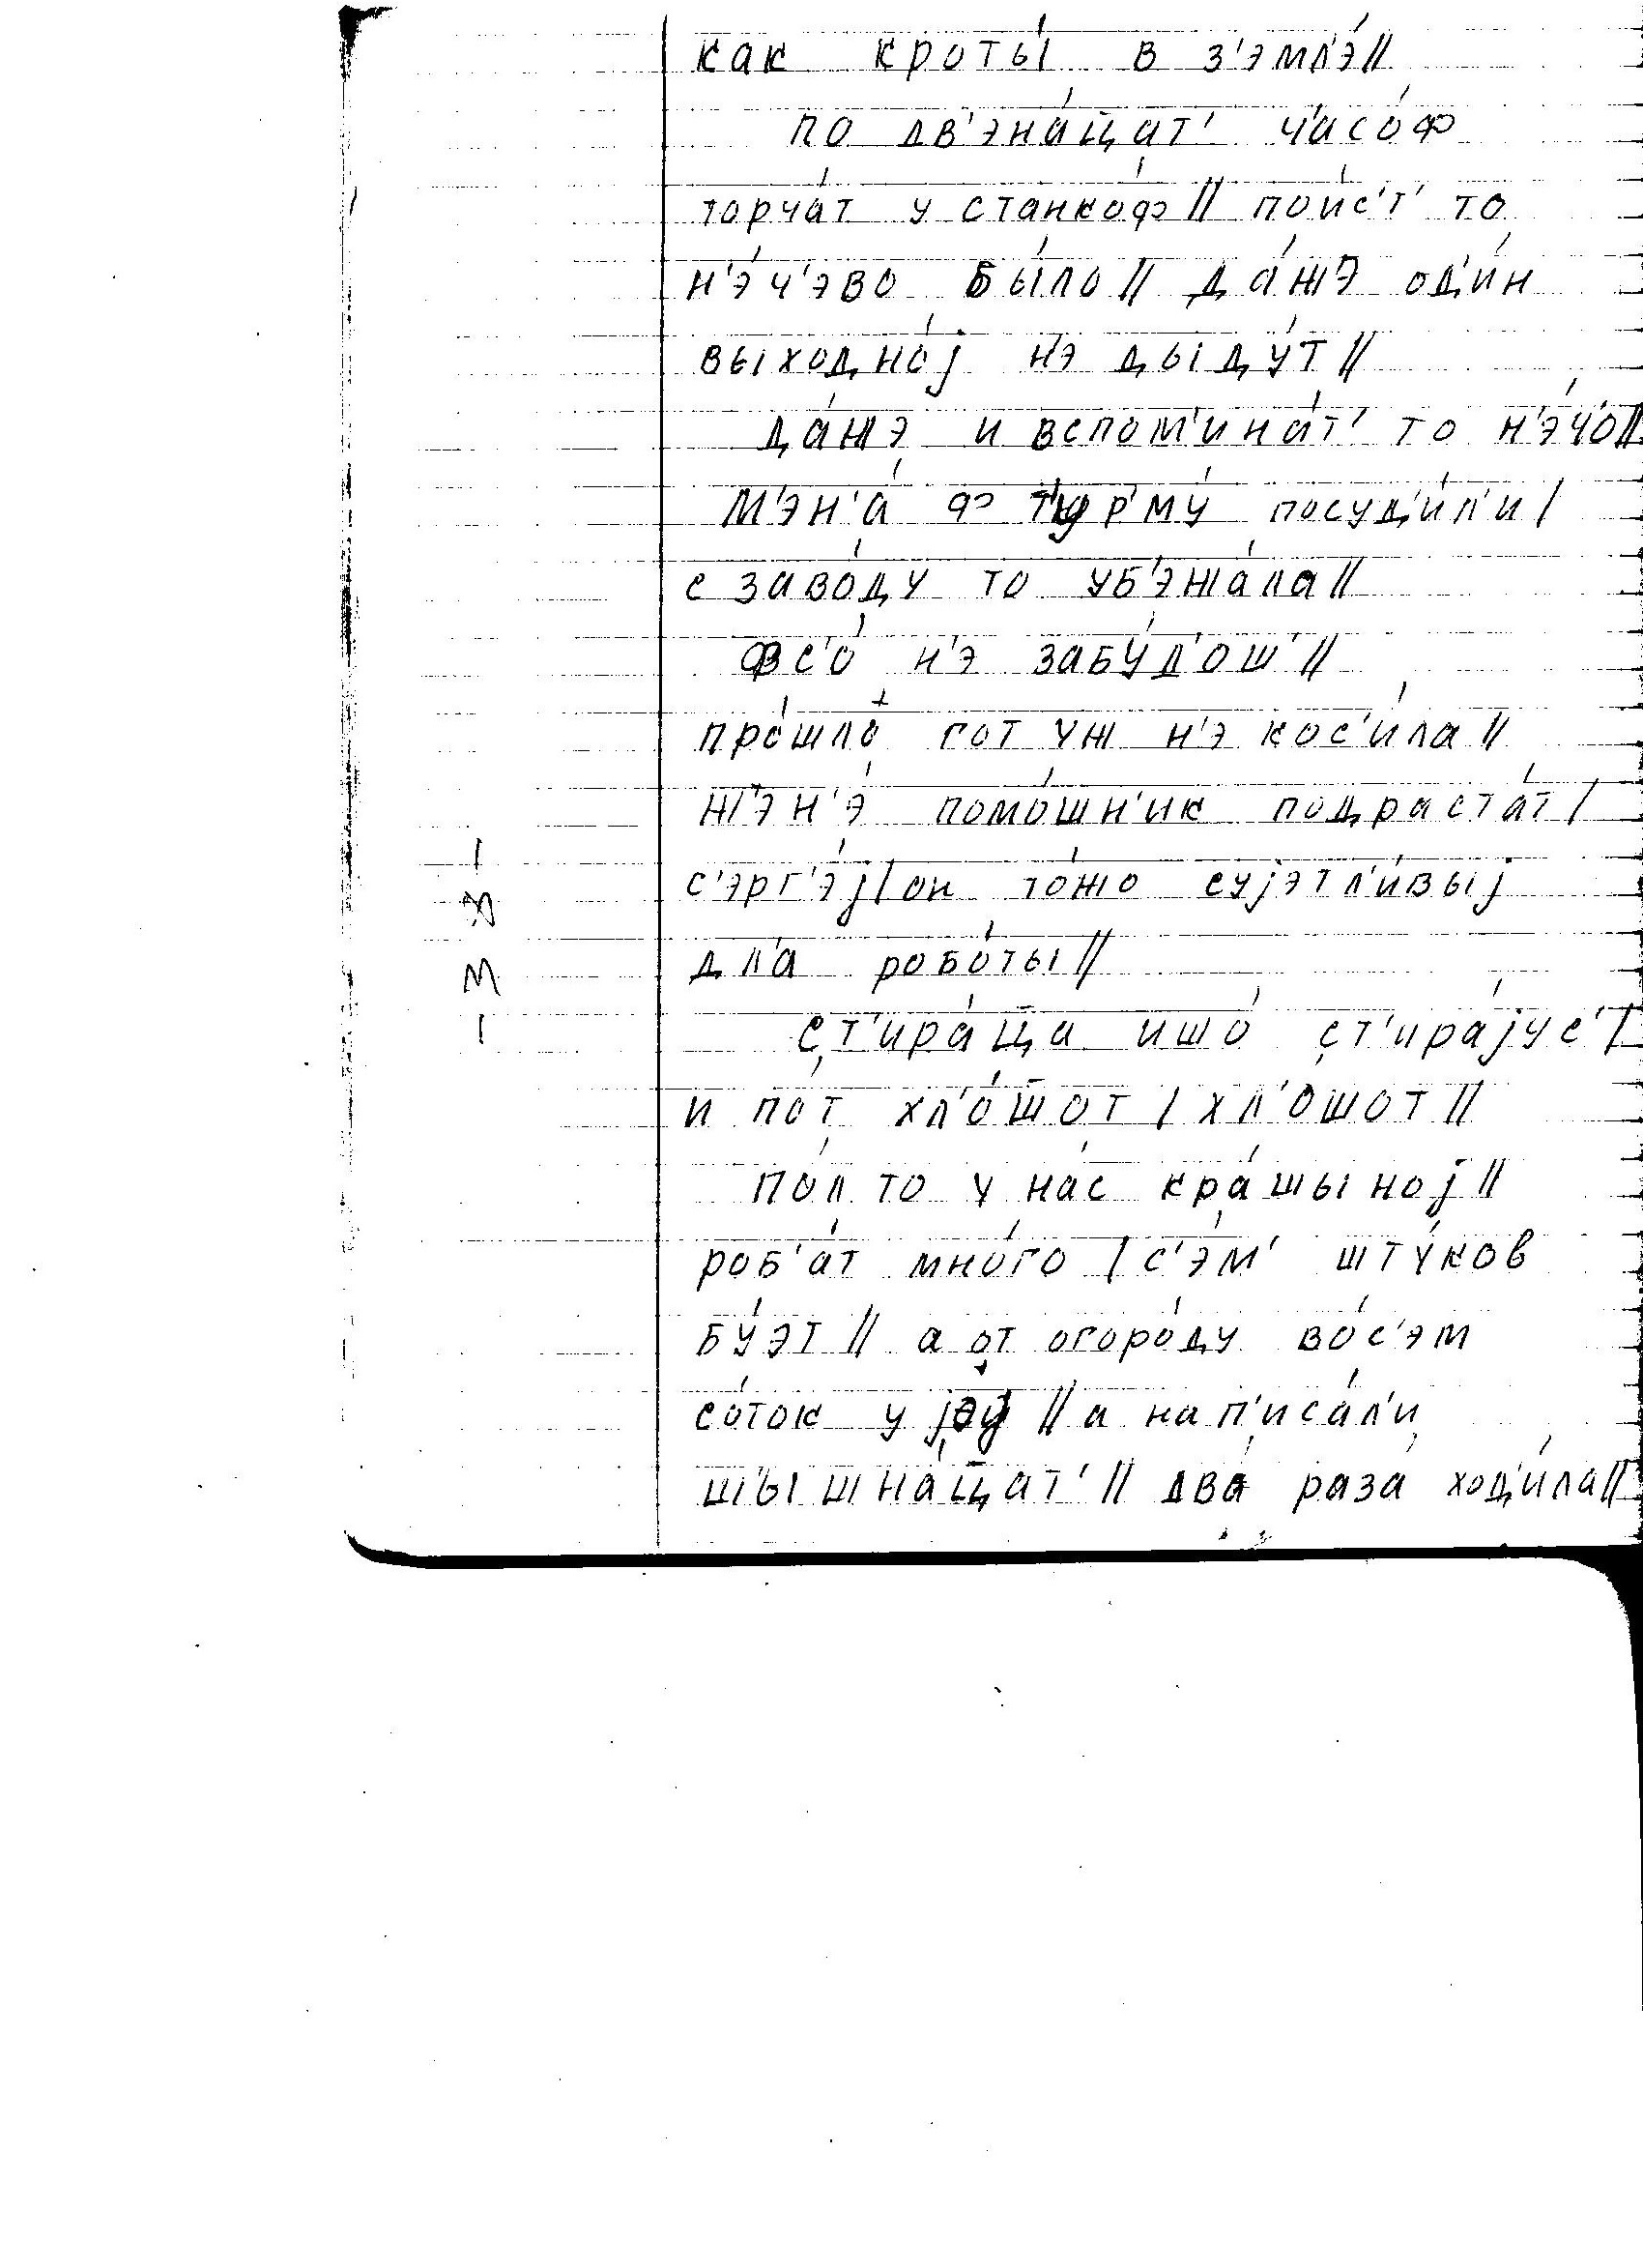 как кроты́ в з'эмл'э́//
по дв'эна́ц̄ат' ч'асо́ф
торча́т у станко́ф// пои́с'т' то
н'э́ч'эво бы́ло// да́жэ од'и́н
выходно́j нэ дыду́т//
да́жэ и вспом'ина́т' то н'э́чо//
м'эн'а́ ф т'урму́ посуд'и́л'и/
с заво́ду то уб'эжа́ла//
фс'о́ н'э забу́д'ош'//
про́шло̀ гот уж н'э кос'и́ла//
жэн'э́ помо́шн'ик подраста́т/
с'эрг'э́j/он то́жо суjэтл'и́выj
дл'а робо́ты//
ст'ира́ц̄а ишо́ ст'ира́jус'/
и по́т хл'о́ш̄от / хл'о́шот//
по́л то у на́с кра́шыноj//
роб'а́т мно́го / с'эм' шту́ков
бу́эт// а от огоро́ду во́с'эм
со́ток у // а нап'иса́л'и
шышна́ц̄ат'// два́ раза́ ход'и́ла//